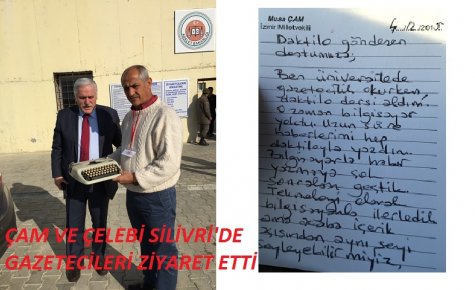 ÇAM VE ÇELEBİ SİLİVRİ'DE
GAZETECİLERİ ZİYARET ETTİ
Musa ÇAM
İzmir Milletvekili
Daktilo gönderen
dostumuza,
Ben üniversitede
gazetecilik okurken,
daktilo dersi aldım.
O zaman bilgisayar
yoktu. Uzun süre
haberlerimi hep
daktiloyla yazdım.
haber
yazmaya çok
sonraları geçtik.
Teknoloji olarak
bilgisayarla ilerledik
ama acaba içerik
açısından aynı şeyi
söyleyebilir miyiz,